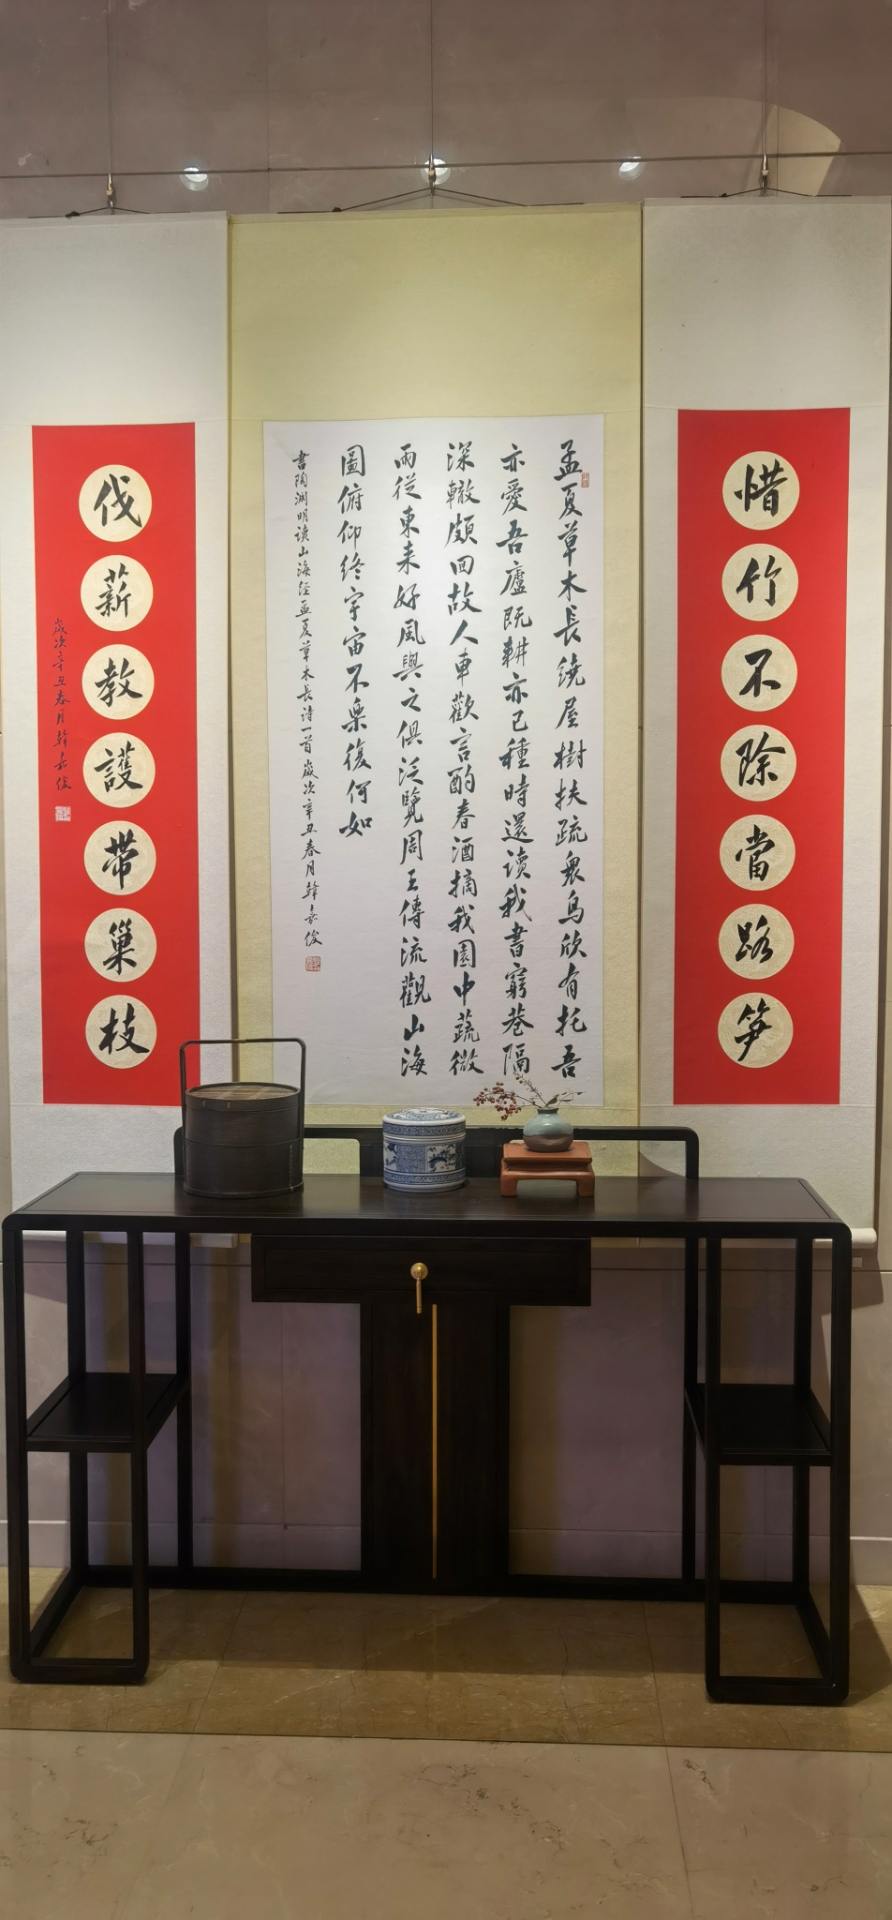 惜竹不除當路笋
孟夏草木長繞屋樹扶疏衆鳥欣有托吾
亦愛吾廬既耕亦已種時還读我書窮巷隔
深轍頗回故人車歡言酌春酒摘我園中蔬微
雨從東来好風與之俱泛覽周王傳流觀山海
圖俯仰终宇宙不樂復何如
書陶渊明读山海经孟夏草木长诗一首歲次辛丑春月韓嘉俊
伐薪教護帶巢枝
歲次辛丑春月韓嘉俊